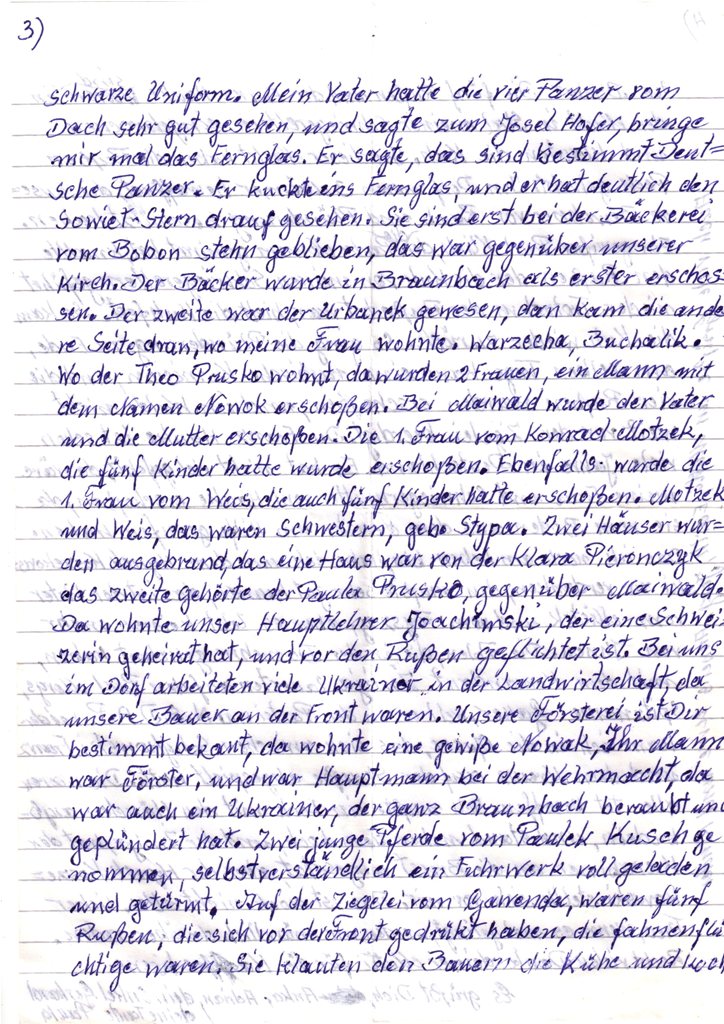 3)
schwarze Uniform. Mein Vater hatte die vier Panzer vom
Dach sehr gut gesehen, und sagte zum Josel Hofer, bringe
mir mal das Fernglas. Er sagte, das sind bestimmt Deut=
sche Panzer. Er kuckte ins Fernglas, und er hat deutlich den
Sowiet-Stern drauf gesehen. Sie sind erst bei der Bäckerei
vom Bobon stehn geblieben, das war gegenüber unserer
Kirch. Der Bäcker wurde in Braunbach als erster erschos=
sen. Der zweite war der Urbanek gewesen, dan kam die ande
re Seite dran, wo meine Frau wohnte. Warzecha, Buchalik.
Wo der Theo Prusko wohnt, da wurden 2 Frauen, ein Mann mit
dem Namen Nowok erschoßen. Bei Maiwald wurde der Vater
und die Mutter erschoßen. Die 1. Frau vom Konrad Motzek,
die fünf Kinder hatte wurde erschoßen. Ebenfalls wurde die
1. Frau vom Weis, die auch fünf Kinder hatte erschoßen. Motzek
und Weis, das waren Schwestern, geb. Stypa. Zwei Häuser wur=
den ausgebrand, das eine Haus war von der Klara Pieronczyk
das zweite gehörte der Paula Prusko, gegenüber Maiwald.
Da wohnte unser Hauptlehrer Joachimski, der eine Schwei
zerin geheirat hat, und vor den Rußen geflichtet ist. Bei uns
im Dorf arbeiteten viele Ukrainer in der Landwirtschaft, da
unsere Bauer an der Front waren. Unsere Försterei ist Dir
bestimmt bekant, da wohnte eine gewiße Nowak, Ihr Mann
war Förster, und war Hauptmann bei der Wehrmacht, da
war auch ein Ukrainer, der ganz Braunbach beraubt un
geplündert hat. Zwei junge Pferde vom Paulek Kusch ge
nommen, selbstverständlich ein Fuhrwerk voll geladen
und getürmt. Auf der Ziegelei vom Gawenda, waren fünf
Rußen, die sich vor der Front gedrükt haben, die fahnenflü
chtige waren. Sie klauten den Bauern die Kühe und